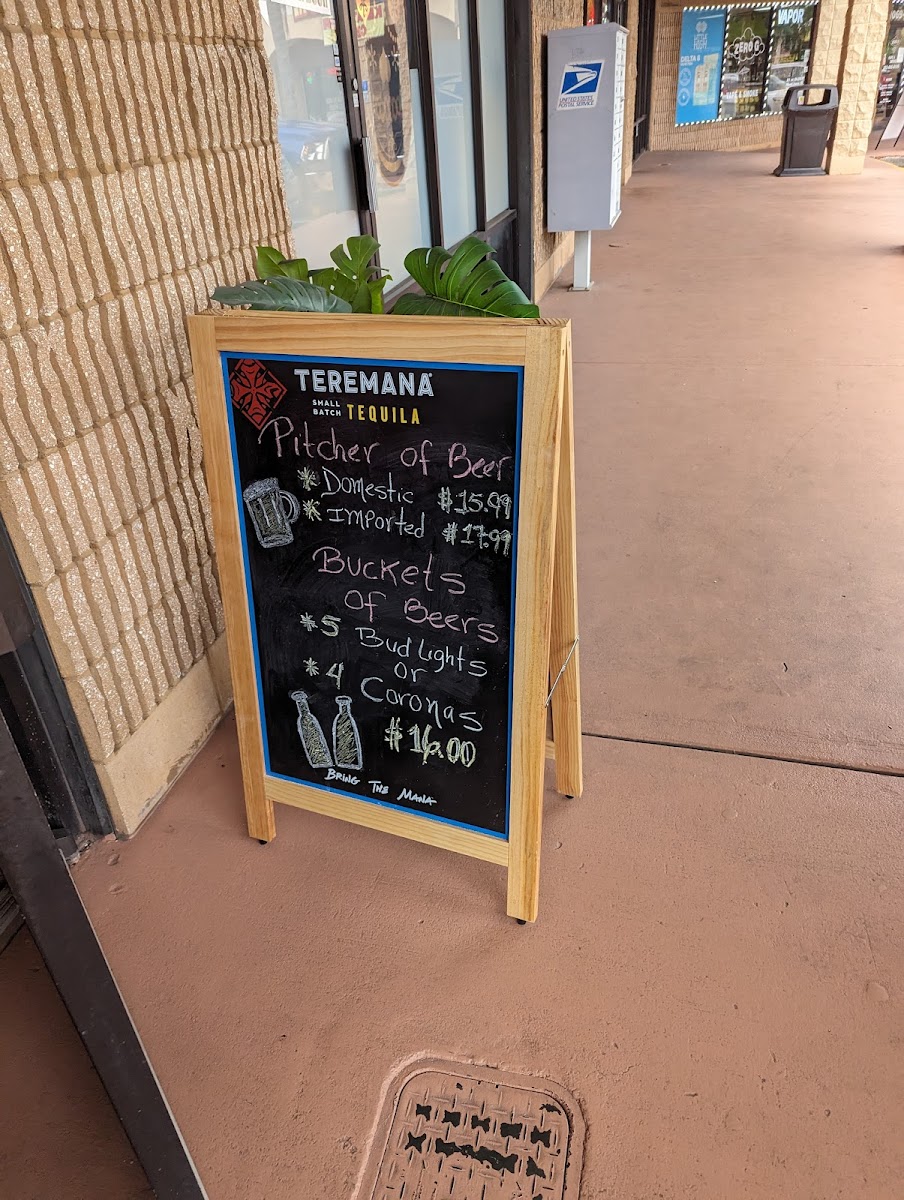 TEREMANA
SMALL
BATCH TEQUILA
Pitcher of Beer
* Domestic $15.99
* Imported $17.99
Buckets
of Beers
* 5 Bud Lights
or
* 4 Coronas
$16.00
BRING THE MANA
UNITED STATES
POSTAL SERVICE
DELTA 8
ZERO G
VAPOR